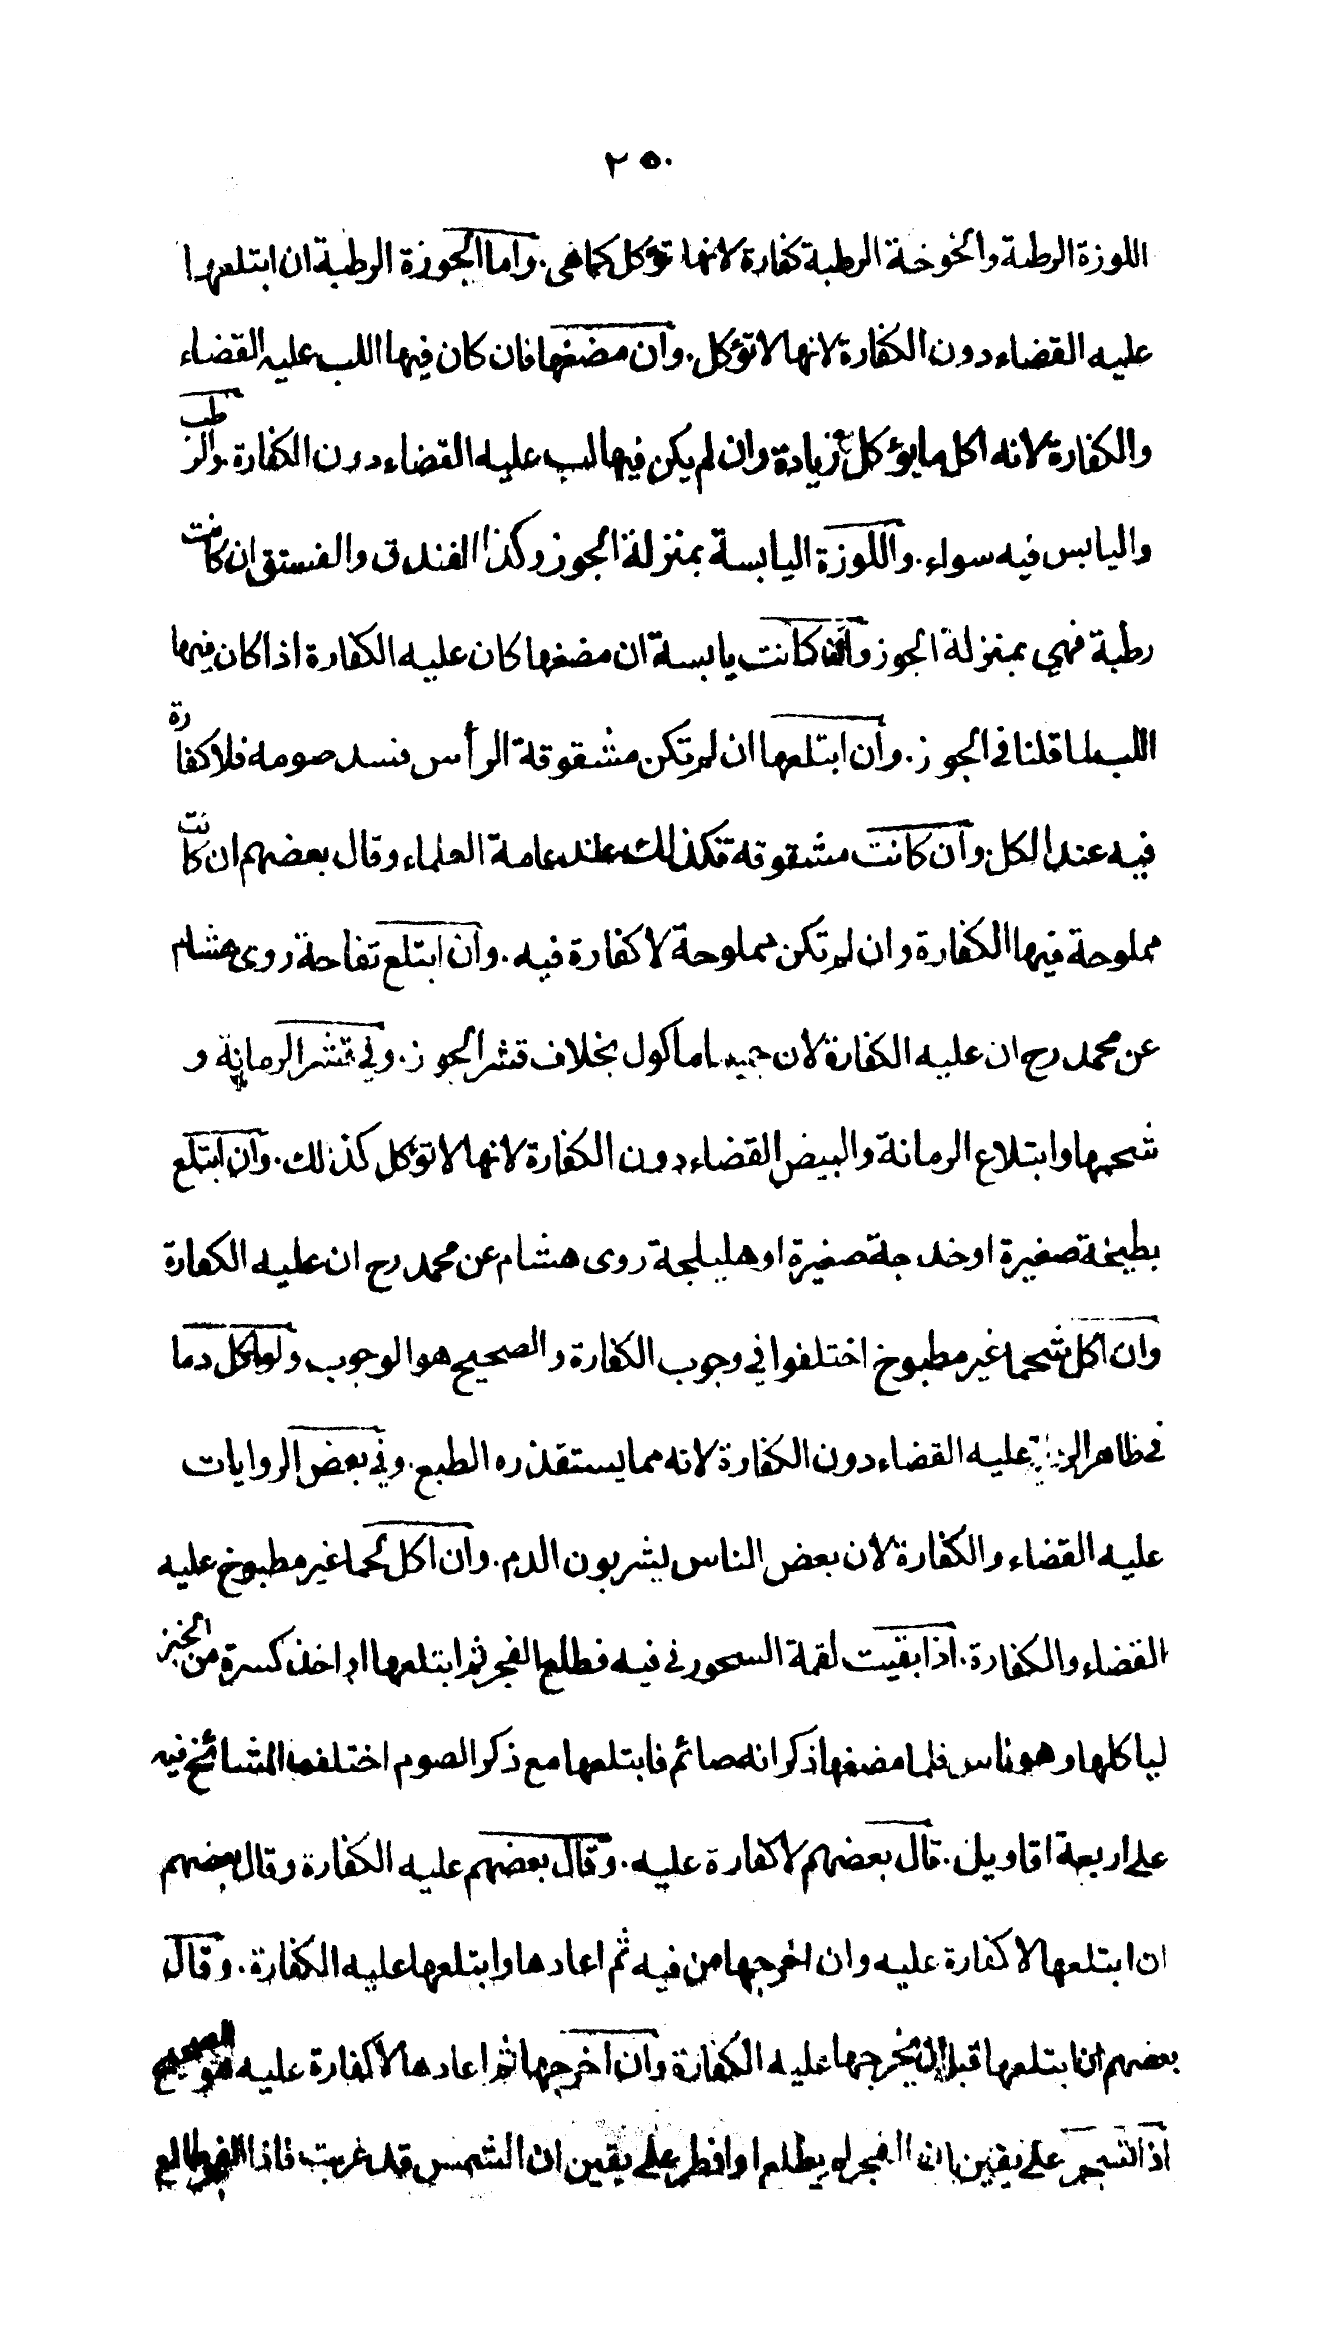 ٢٥٠
اللوزة الرطبة والخوخة الرطبة كفارة لانها تؤكل كما هى. واما الجوزة الرطبة ان ابتلعها
عليه القضاء دون الكفارة لانها لا تؤكل. وان مضغها فان كان فيها اللب عليه القضاء
والكفارة لانه اكل ما يؤكل مع زيادة وان لم يكن فيها لب عليه القضاء دون الكفارة والرطب
واليابس فيه سواء. واللوزة اليابسة بمنزلة الجوز وكذا الفندق والفستق ان كانت
رطبة فهي بمنزلة الجوز وان كانت يابسة ان مضغها كان عليه الكفارة اذا كان فيها
اللب لما قلنا في الجوز. وان ابتلعها ان لم تكن مشقوقة الرأس فسد صومه فلا كفارة
فيه عند الكل وان كانت مشقوقة فكذلك عند عامة العلماء وقال بعضهم ان كانت
مملوحة فيها الكفارة وان لم تكن مملوحة لا كفارة فيه. وان ابتلع تفاحة روى هشام
عن محمد رح ان عليه الكفارة لان جميعها مأكول بخلاف قشر الجوز. وفي قشر الرمانة و
شحمها وابتلاع الرمانة والبيض القضاء دون الكفارة لانها لا تؤكل كذلك. وان ابتلع
بطيخة صغيرة او خدجة صغيرة او هليلجة روى هشام عن محمد رح ان عليه الكفارة
وان اكل شحما غير مطبوخ اختلفوا في وجوب الكفارة والصحيح هو الوجوب ولو اكل دما
في ظاهر الرواية عليه القضاء دون الكفارة لانه مما يستقذره الطبع. وفي بعض الروايات
عليه القضاء والكفارة لان بعض الناس يشربون الدم. وان اكل لحما غير مطبوخ عليه
القضاء والكفارة. اذا بقيت لقمة السحور في فيه فطلع الفجر ثم ابتلعها او اخذ كسرة من الخبز
ليأكلها وهو ناس فلما مضغها ذكر انه صائم فابتلعها مع ذكر الصوم اختلف المشائخ فيه
على اربعة اقاويل. قال بعضهم لا كفارة عليه. وقال بعضهم عليه الكفارة وقال بعضهم
ان ابتلعها لا كفارة عليه وان اخرجها من فيه ثم اعادها وابتلعها عليه الكفارة. وقال
بعضهم ان ابتلعها قبل ان يخرجها عليه الكفارة وان اخرجها ثم اعادها لا كفارة عليه هو الصحيح
اذا تسحر على يقين ان الفجر لم يطلع او افطر على يقين ان الشمس قد غربت فاذا الفجر طالع